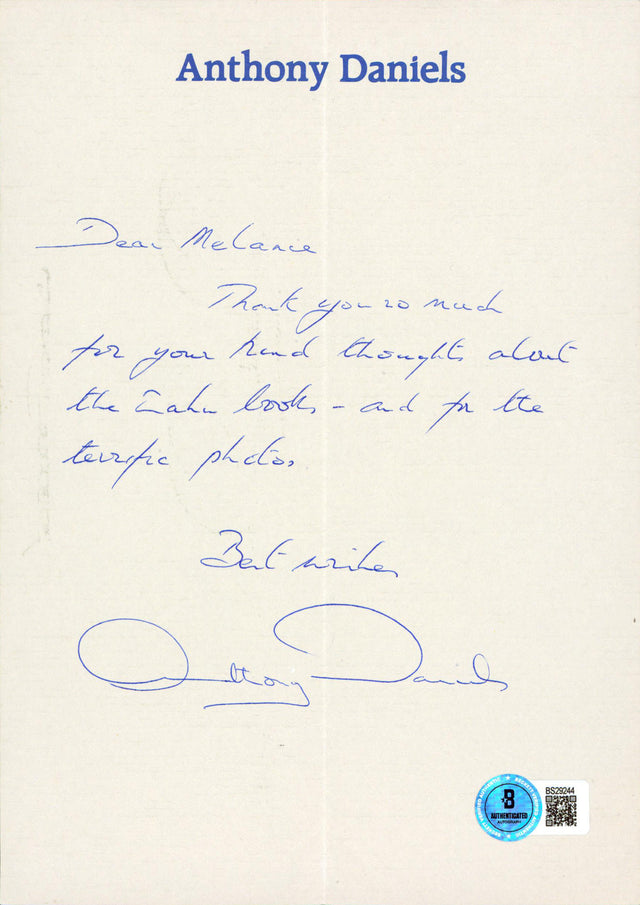 Anthony Daniels
Dear Melanie
Thank you so much
for your kind thoughts about
the books - and for the
terrific photos.
Best wishes
Anthony Daniels
BS29244
B
AUTHENTICATED
AUTOGRAPH